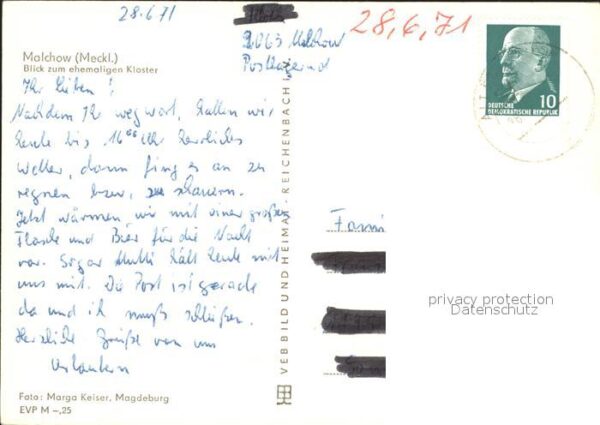 28.6.71
2063 Malchow
Postlagernd
28.6.71
Malchow (Meckl.)
Blick zum ehemaligen Kloster
Ihr Lieben!
Nachdem Ihr weg wart, hatten wir
heute bis 16⁰⁰ Uhr herrliches
Wetter, dann fing es an zu
regnen bzw. zu schauern.
Jetzt wärmen wir mit einer großen
Flasche und Bier für die Nacht
vor. Sogar Mutti hält heute mit
uns mit. Die Post ist gerade
da und ich muß schließen.
Herzliche Grüße von uns
Urlaubern
Foto: Marga Keiser, Magdeburg
EVP M –,25
VEB BILD UND HEIMAT REICHENBACH
DEUTSCHE
DEMOKRATISCHE REPUBLIK
10
Fami
privacy protection
Datenschutz